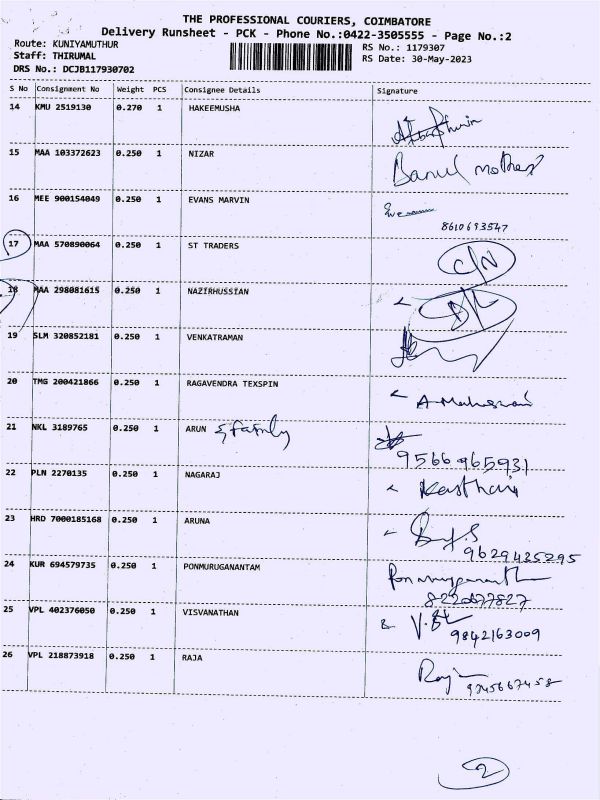 THE PROFESSIONAL COURIERS, COIMBATORE
Delivery Runsheet - PCK - Phone No.:0422-3505555 - Page No.:2
Route: KUNIYAMUTHUR RS No.: 1179307
Staff: THIRUMAL RS Date: 30-May-2023
DRS No.: DCJB117930702
S No Consignment No Weight PCS Consignee Details Signature
14 KMU 2519130 0.270 1 HAKEEMUSHA
15 MAA 103372623 0.250 1 NIZAR Banul mother
16 MEE 900154049 0.250 1 EVANS MARVIN
8610693547
17 MAA 570890064 0.250 1 ST TRADERS C/N
18 MAA 298081615 0.250 1 NAZIRHUSSIAN D/L
19 SLM 320852181 0.250 1 VENKATRAMAN
20 TMG 200421866 0.250 1 RAGAVENDRA TEXSPIN
21 NKL 3189765 0.250 1 ARUN & family
9566965931
22 PLN 2270135 0.250 1 NAGARAJ
23 HRD 7000185168 0.250 1 ARUNA
9629435295
24 KUR 694579735 0.250 1 PONMURUGANANTAM
25 VPL 402376050 0.250 1 VISVANATHAN
9842163009
26 VPL 218873918 0.250 1 RAJA
2